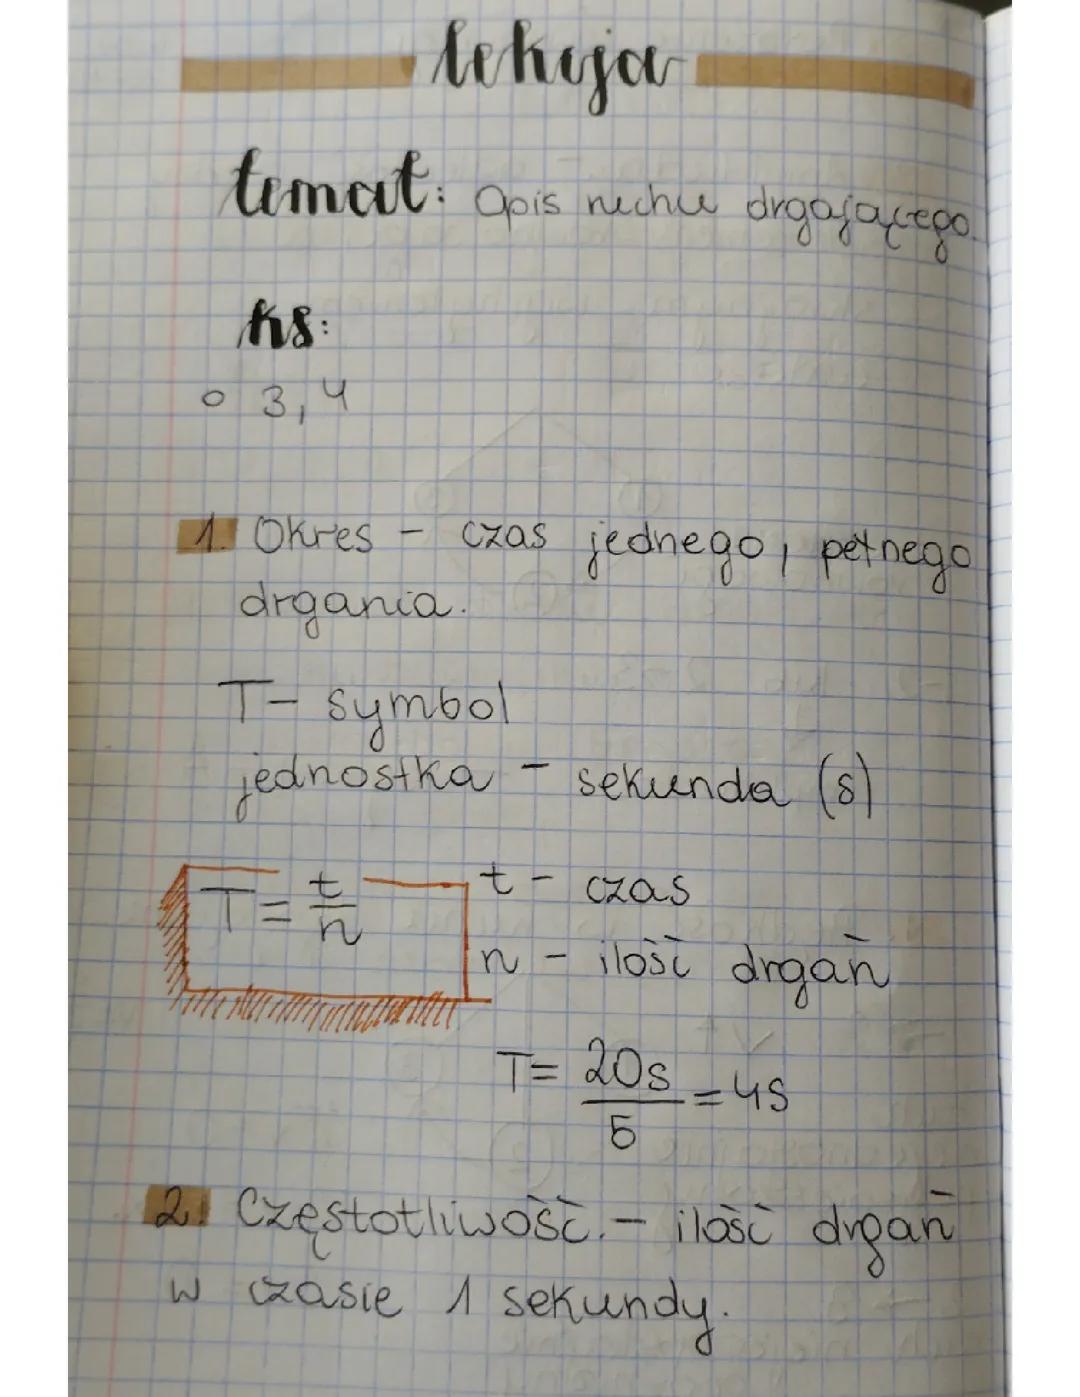 lekcja
temat: Opis ruchu drgającego.
ks:
o 3,4
1. Okres - czas jednego, pełnego
drgania.
T- symbol
jednostka - sekunda (s)
T = t/n
t - czas
n - ilość drgań
T= 20s/5 = 4s
2. Częstotliwość. - ilość drgań
w czasie 1 sekundy.